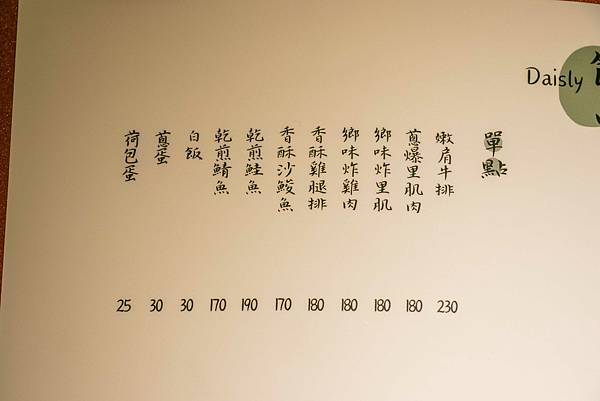 Daisly
單點
嫩肩牛排 230
蔥爆里肌肉 180
鄉味炸里肌 180
鄉味炸雞肉 180
香酥雞腿排 180
香酥沙鮻魚 170
乾煎鮭魚 190
乾煎鯖魚 170
白飯 30
蔥蛋 30
荷包蛋 25